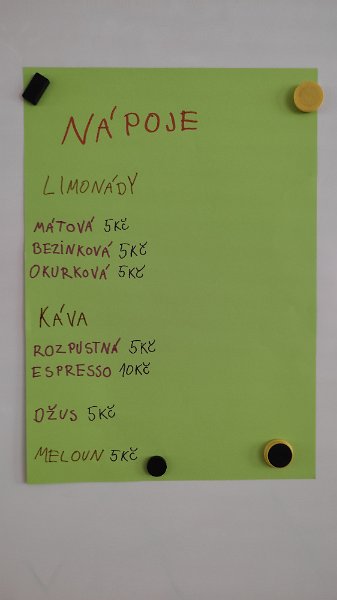 NÁPOJE
LIMONÁDY
MÁTOVÁ 5KČ
BEZINKOVÁ 5KČ
OKURKOVÁ 5KČ
KÁVA
ROZPUSTNÁ 5KČ
ESPRESSO 10KČ
DŽUS 5KČ
MELOUN 5KČ